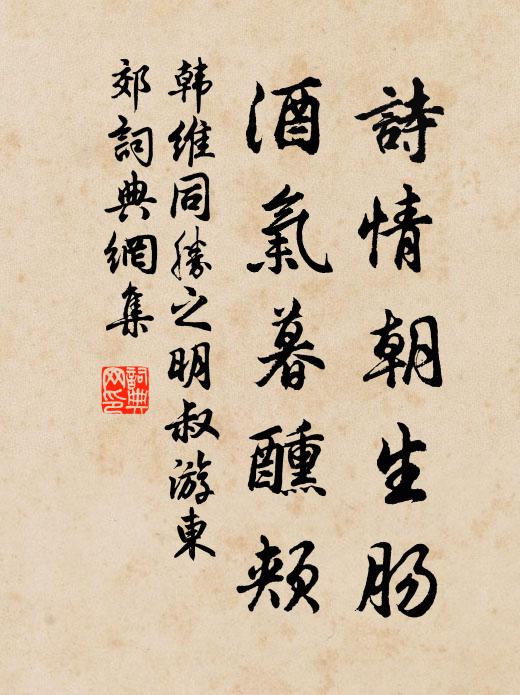 詩情朝生肠
酒氣暮醺頰
韩维同勝之明叔游東
郊詞典網集
詞典网印